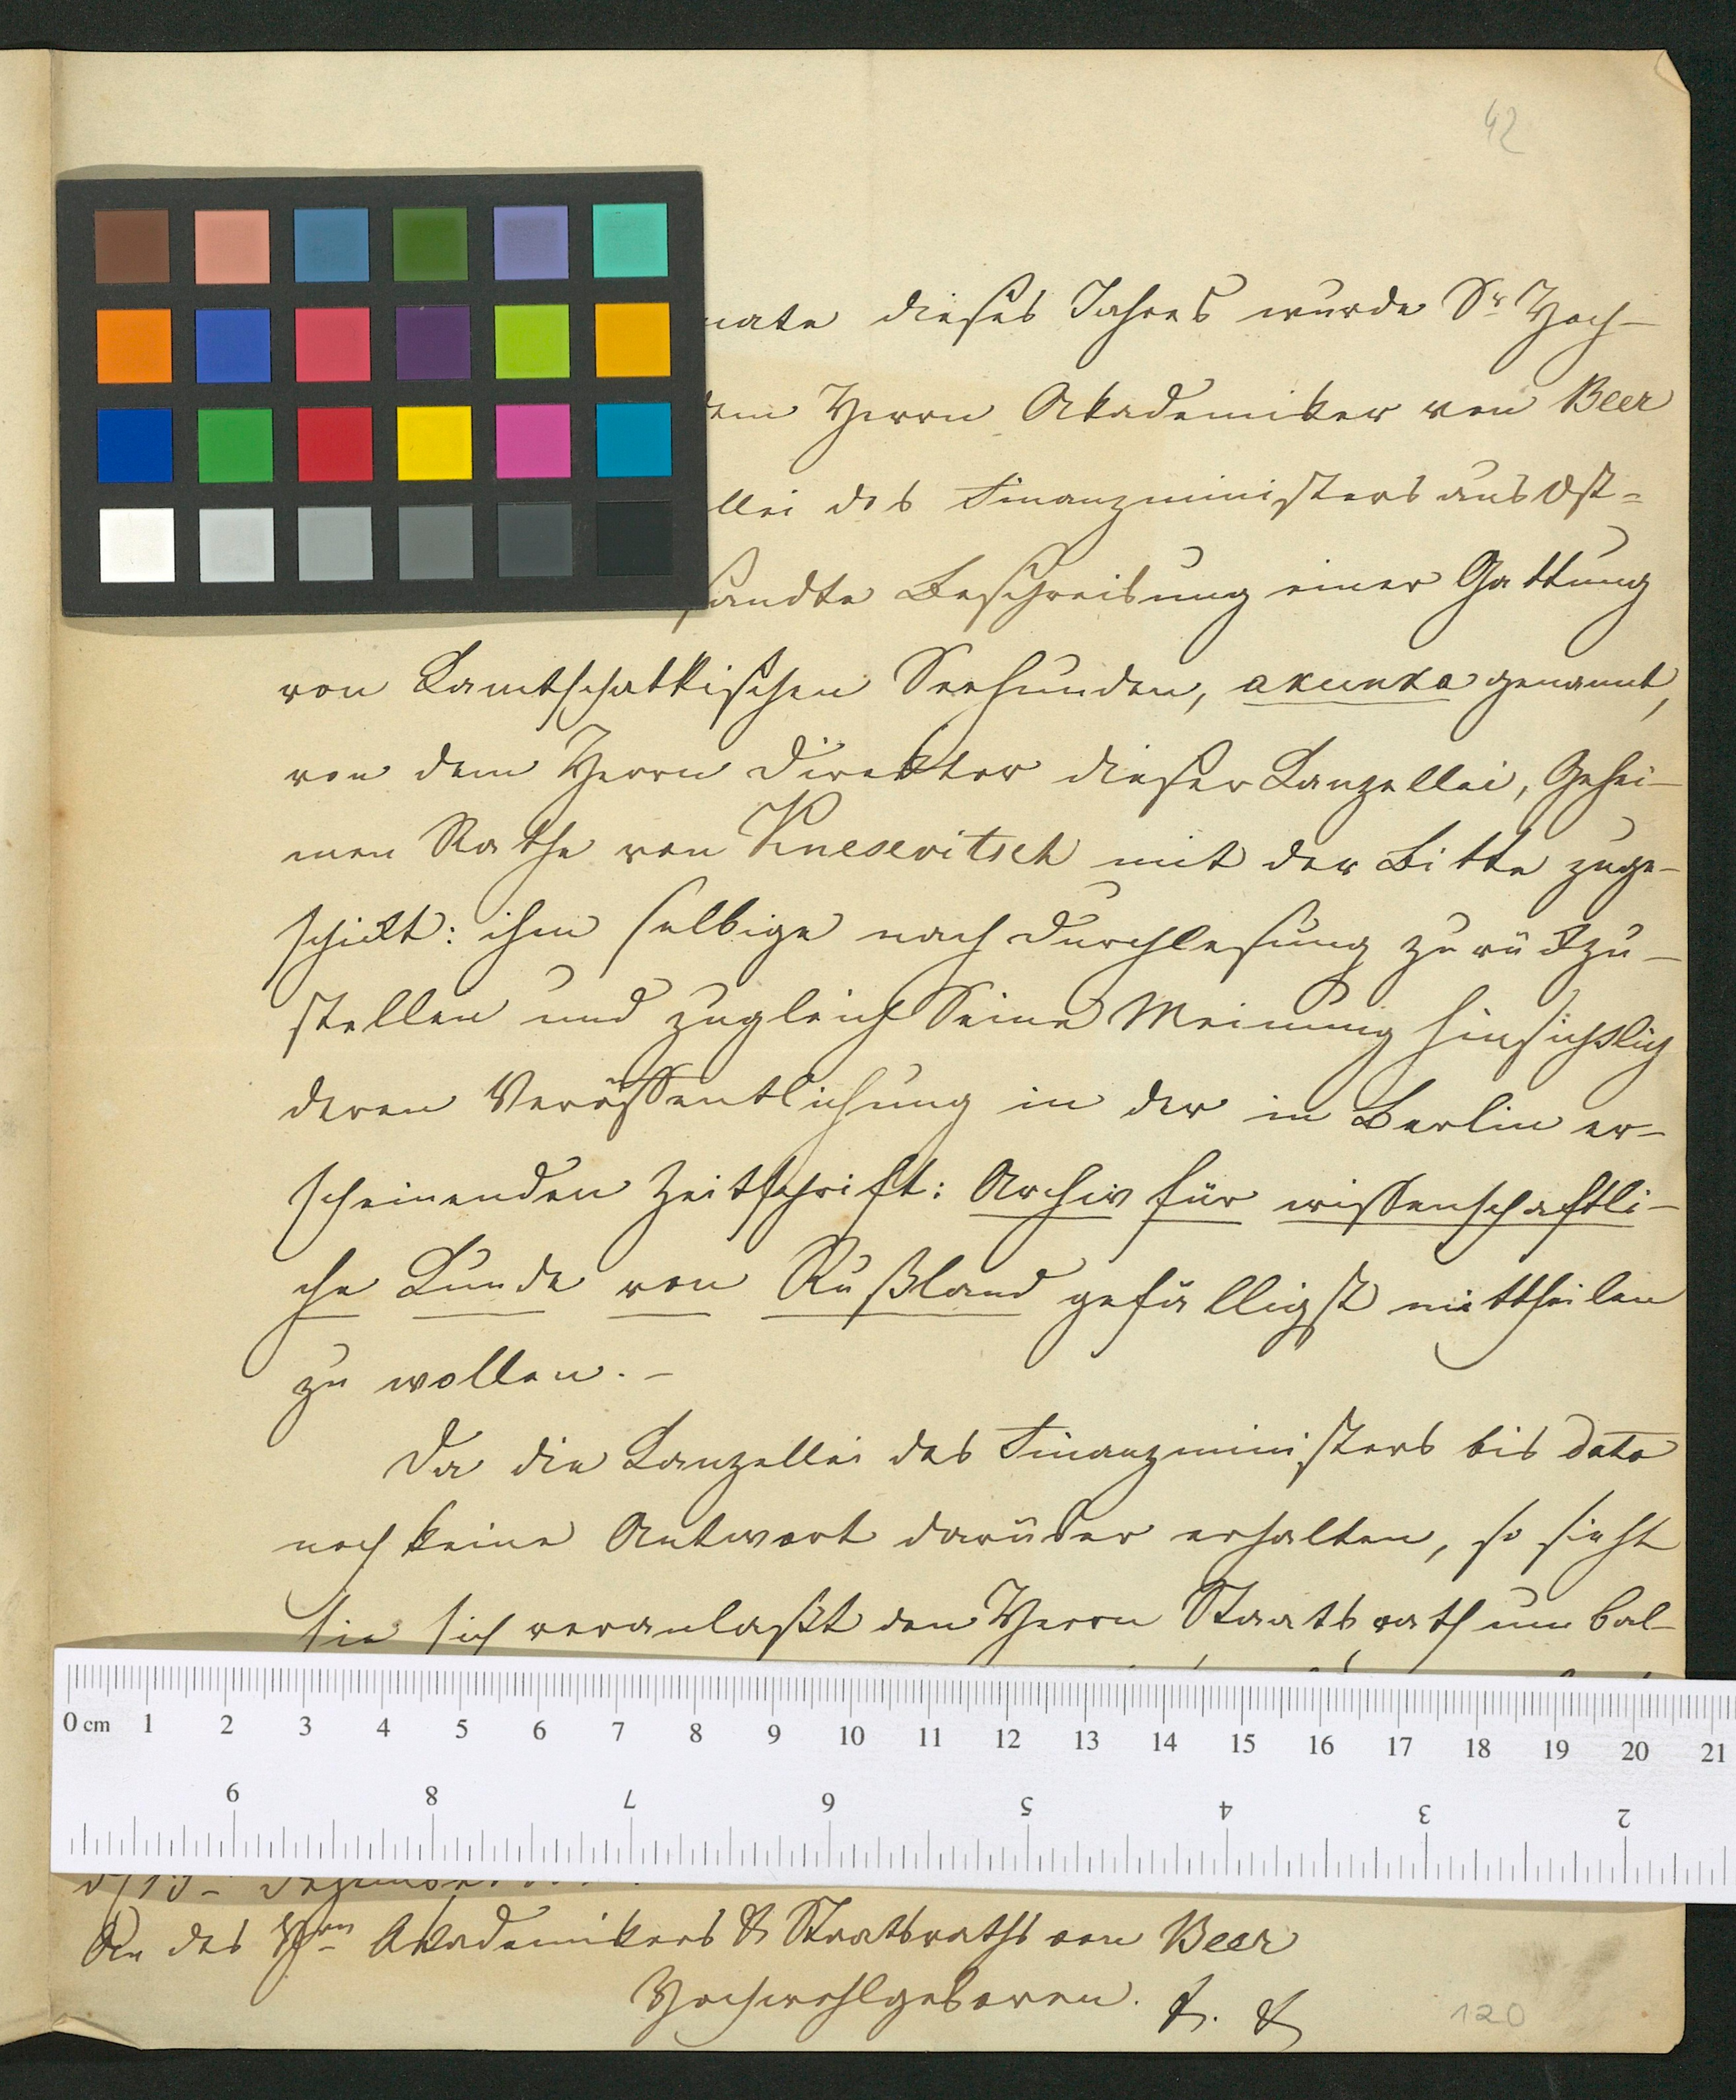 42
nate dieses Jahres wurde Sr Hoch-
dem Herrn Akademiker von Beer
llei des Finanzministers aus Ost-
sandte Beschreibung einer Gattung
von Kamtschatkischen Seehunden, akunka genannt,
von dem Herrn Direktor dieser Kanzellei, Gehei-
men Rathe von Knesevitsch mit der Bitte zuge-
schickt: ihm selbige nach Durchlesung zurückzu-
stellen und zugleich Seine Meinung hinsichtlich
deren Veröffentlichung in der in Berlin er-
scheinenden Zeitschrift: Archiv für wissenschaftli-
che Kunde von Rußland gefälligst mittheilen
zu wollen. -
Da die Kanzellei des Finanzministers bis dato
noch keine Antwort darüber erhalten, so sieht
sie sich veranlaßt den Herrn Staatsrath um bal-
0 cm 1 2 3 4 5 6 7 8 9 10 11 12 13 14 15 16 17 18 19 20 21
9 8 7 6 5 4 3 2
An des Hrn Akademikers & Staatsraths von Beer
Hochwohlgeboren. &. &
120